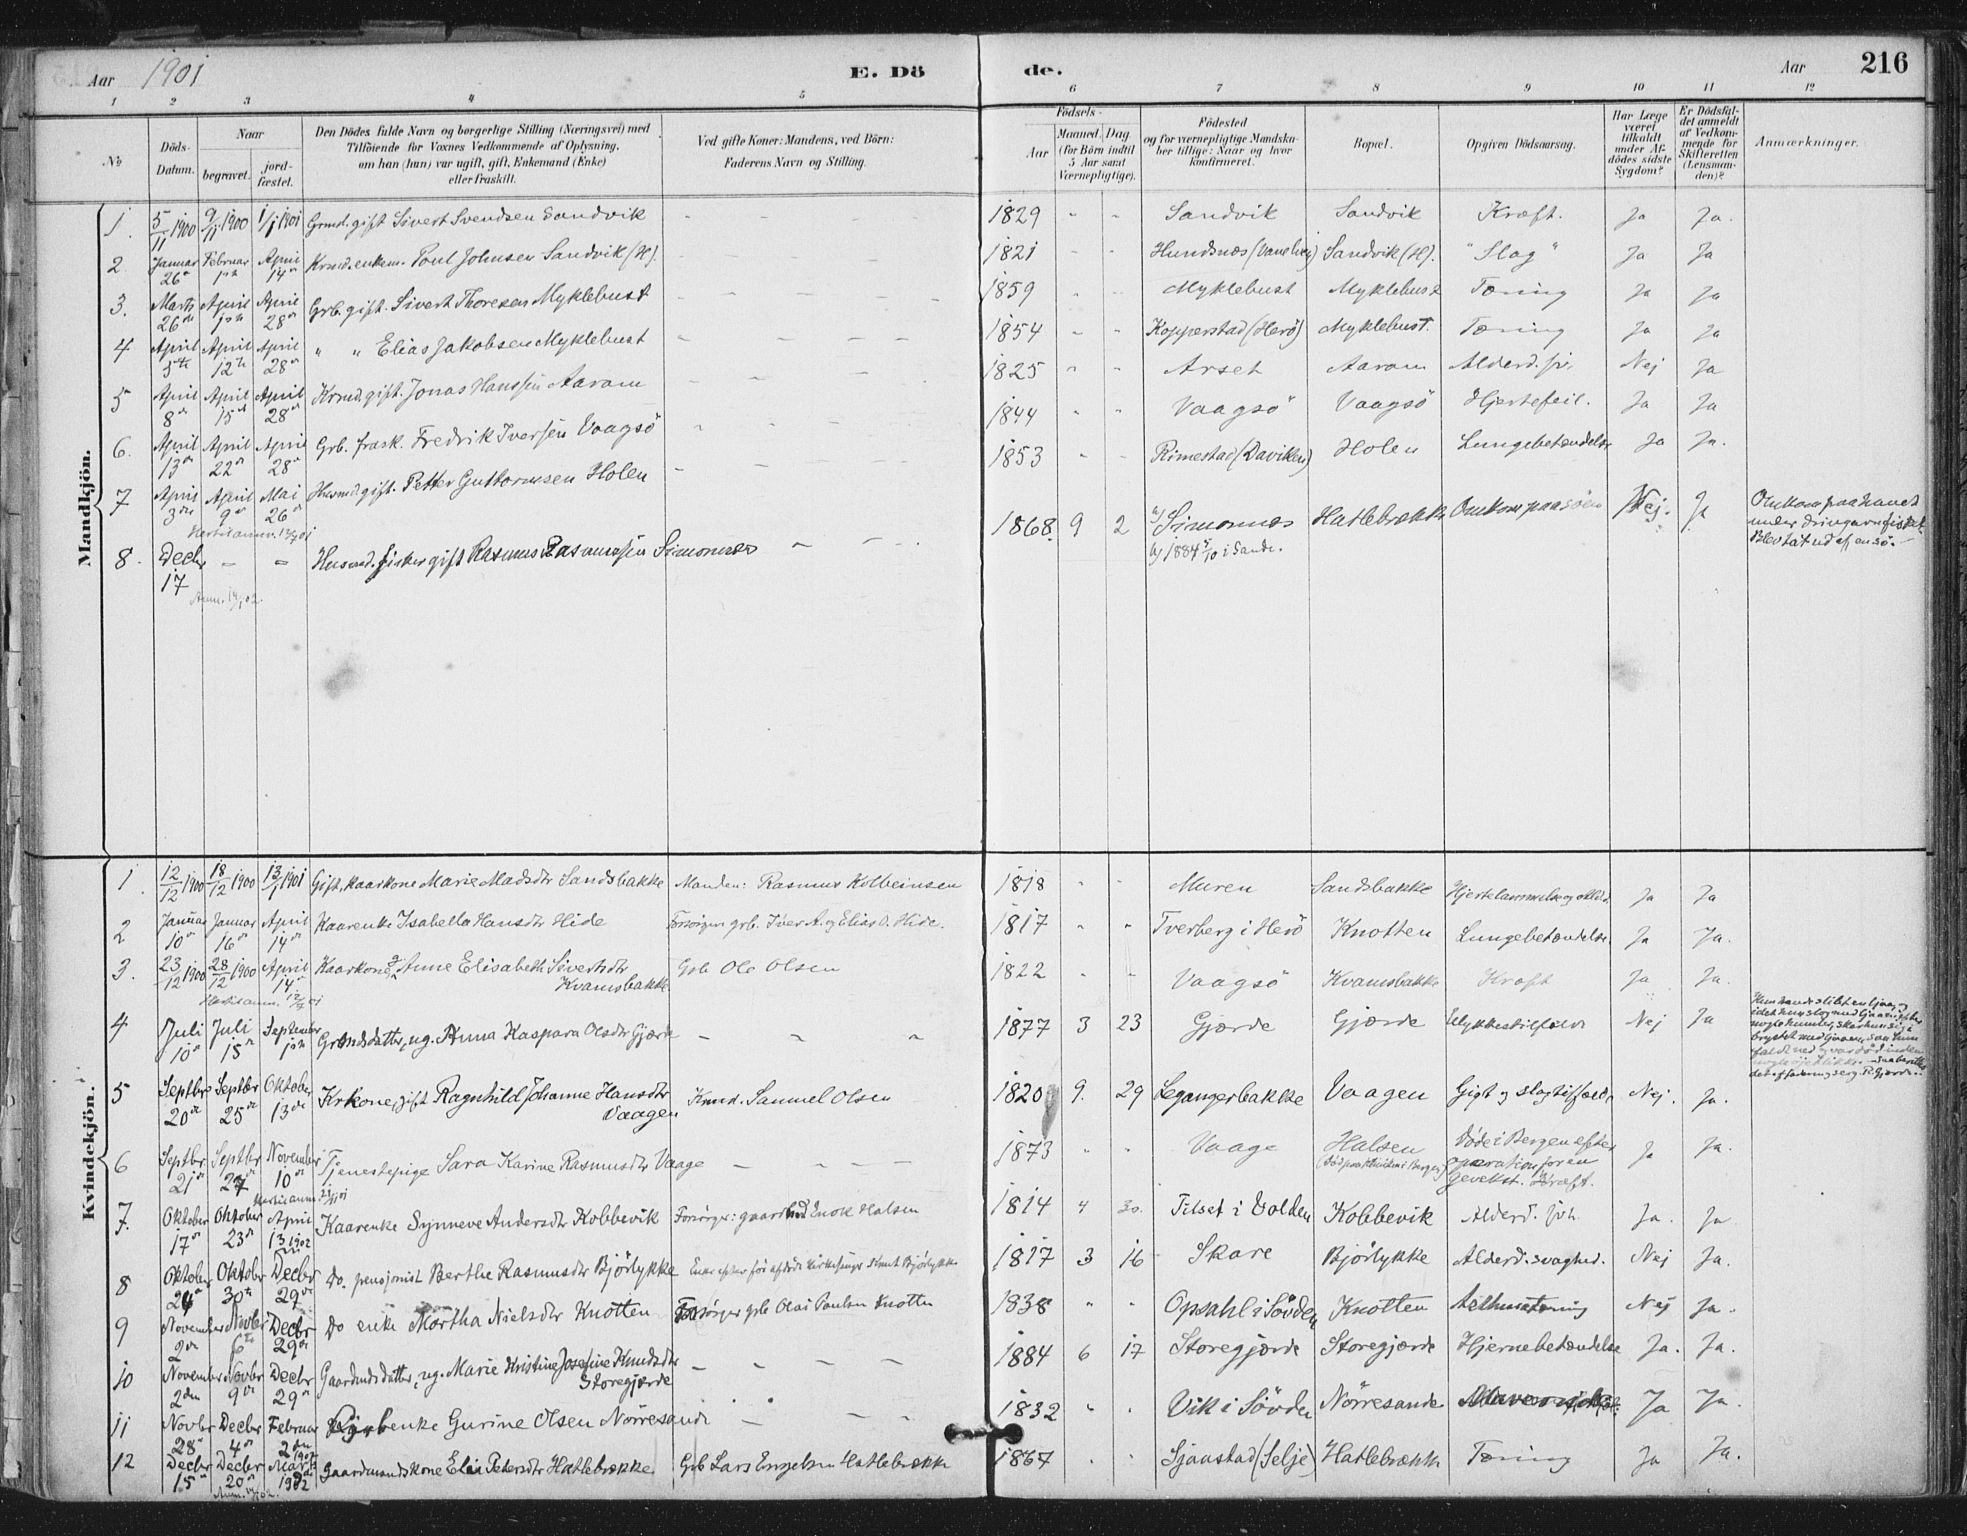 Aar 1901 E. Dö de. Aar 216
1 2 3 4 5 6 7 8 9 10 11 12
№
Döds-Datum.
Naar
begravet.
jord-fæstet.
Den Dödes fulde Navn og borgerlige Stilling (Næringsvei) med
Tilföiende for Voxnes Vedkommende af Oplysning,
om han (hun) var ugift, gift, Enkemand (Enke)
eller fraskilt.
Ved gifte Koner: Mandens, ved Börn:
Faderens Navn og Stilling.
Födsels-
Aar
Maaned. Dag.
(for Börn indtil
5 Aar samt
Værnepligtige).
Födested
og for værnepligtige Mandska-
ber tillige: Naar og hvor
konfirmeret.
Bopæl.
Opgiven Dödsaarsag.
Har Læge
været
tilkaldt
under Af-
dödes sidste
Sygdom?
Er Dödsfal-
det anmeldt
af Vedkom-
mende for
Skifteretten
(Lensman-
den)?
Anmærkninger.
Mandkjön.
1. 5/11 1900 9/11 1900 1/1 1901 Grmd. gift Sivert Svendsen Sandvik - - - 1829 - - Sandvik Sandvik Kræft. Ja Ja.
2. Januar 26de Februar 1ste April 14de Krmd. enkem. Poul Johnsen Sandvik (H). - - - 1821 - - Hundsnæs (Vanelven) Sandvik (H). "Slag" Ja Ja
3. Marts 26de April 1ste April 28de Grb. gift. Sivert Thoresen Myklebust - - - 1859 - - Myklebust Myklebust Tæring Ja Ja
4 April 5te April 12te April 28de " " Elias Jakobsen Myklebust - - - 1854 " - Kopperstad (Herö) Myklebust. Tæring Ja Ja
5 April 8de April 15de April 28de Krmd. gift. Jonas Hanssen Aaram - - - 1825 " - Arset Aaram Alderd. Nej Ja
6. April 13de April 22de April 28de Grb. frask. Fredrik Iversen Vaagsö - - - 1844 " " Vaagsö Vaagsö Hjertefeil. Ja Ja
7 April 3die April 9de Mai 26de Husmd. gift. Petter Guttormsen Holen - - - 1853 - - Rimestad (Daviken) Holen Lungebetændelse Ja Ja.
8. Decbr 17 - - Husmd. fisker gift Rasmus Rasmussen Simonnes - - - 1868. 9 2 a) Simonnes Hatlebrække Omkom paa söen Nej. Ja Omkom paa havet
b) 1884 5/10 i Sande. under
Blev tat ud af en sö.
Kvindekjön.
1. 12/12 1900 18/12 1900 13/1 1901 Gift, kaarkone Marie Madsdtr Sandsbakke Manden: Rasmus Kolbeinsen 1818 " - Muren Sandsbakke Hjertelammelse og Ja Ja
2 Januar 10de Januar 16de April 14de Kaarenke Isabella Hansdtr Hide Forsörger grb. Iver A. og Elias O. Hide. 1817 " " Tverberg i Herö Knotten Lungebetændelse. Ja Ja.
3. 23/12 1900 28/12 1900 April 14de Kaarkone, g. Anne Elisabeth Sivertsdtr Grb Ole Olsen 1822 - - Vaagsö Kvamsbakke Kræft Ja Ja.
Kvamsbakke.
4 Juli 10de Juli 15de September 1ste Grmdsdatter, ug. Anna Kaspara Olsdtr Gjærde - - " 1877 3 23 Gjærde Gjærde Ulykkestilfælde Nej Ja
5 Septbr 20de Septbr 25de Oktober 13de Krkone, gift Ragnhild Johanne Hansdtr Krmd. Samuel Olsen 1820 9. 29 Legangerbakke Vaagen Gigt og slagtilfælde Nej. Ja.
Vaagen
6 Septbr 21de Septbr 27 November 10de Tjenestepige Sara Karine Rasmusdtr Vaage - - - 1873 " " Vaage Halsen Döde i Bergen efter Ja Ja.
operation for en
gevekst. Kræft.
7. Oktober 17de Oktober 23de April 13 1902 Kaarenke Synneve Andersdtr Kobbevik Forsörger: gaardmd Enok Halsen 1814 4 30. Tilset i Volden Kobbevik Alderd. Ja. Ja.
8 Oktober 24de Oktobr 30te Decbr 29de Do. pensjonist Berthe Rasmusdtr Björlykke Enke efter för afdöde kirkesanger Knut Bjorlykke 1817 3 16 Skare Bjorlykke Alderd. svaghed. Nej Ja.
9 November 2de Novbr 6te Decbr 29de Do enke Martha Nielsdtr Knotten Forsörger grb Olai Paulsen Knotten 1838 " " Opsahl i Sövden Knotten Nej Ja.
10 November 2den Novbr 9de Decbr 29de Gaardmdsdatter, ug. Marie Kristine Josefine Knudsdtr - - - - 1884 6 17 Storegjærde Storegjærde Hjernebetændelse Ja. Ja.
Storegjærde
11 Novbr 28de Decbr 4de Februar 2den 1902 Gurine Olsen Nörresande - - - 1832 " . Vik i Sövden Nörresande Ja Ja.
12 Decbr 15de Decbr 20de Marts 1902 Gaardmandskone Petersdtr Hatlebrække. Grb Lars Engelsen Hatlebrække 1867 . . Sjaastad (Selje) Hatlebrække Tæring Ja Ja.